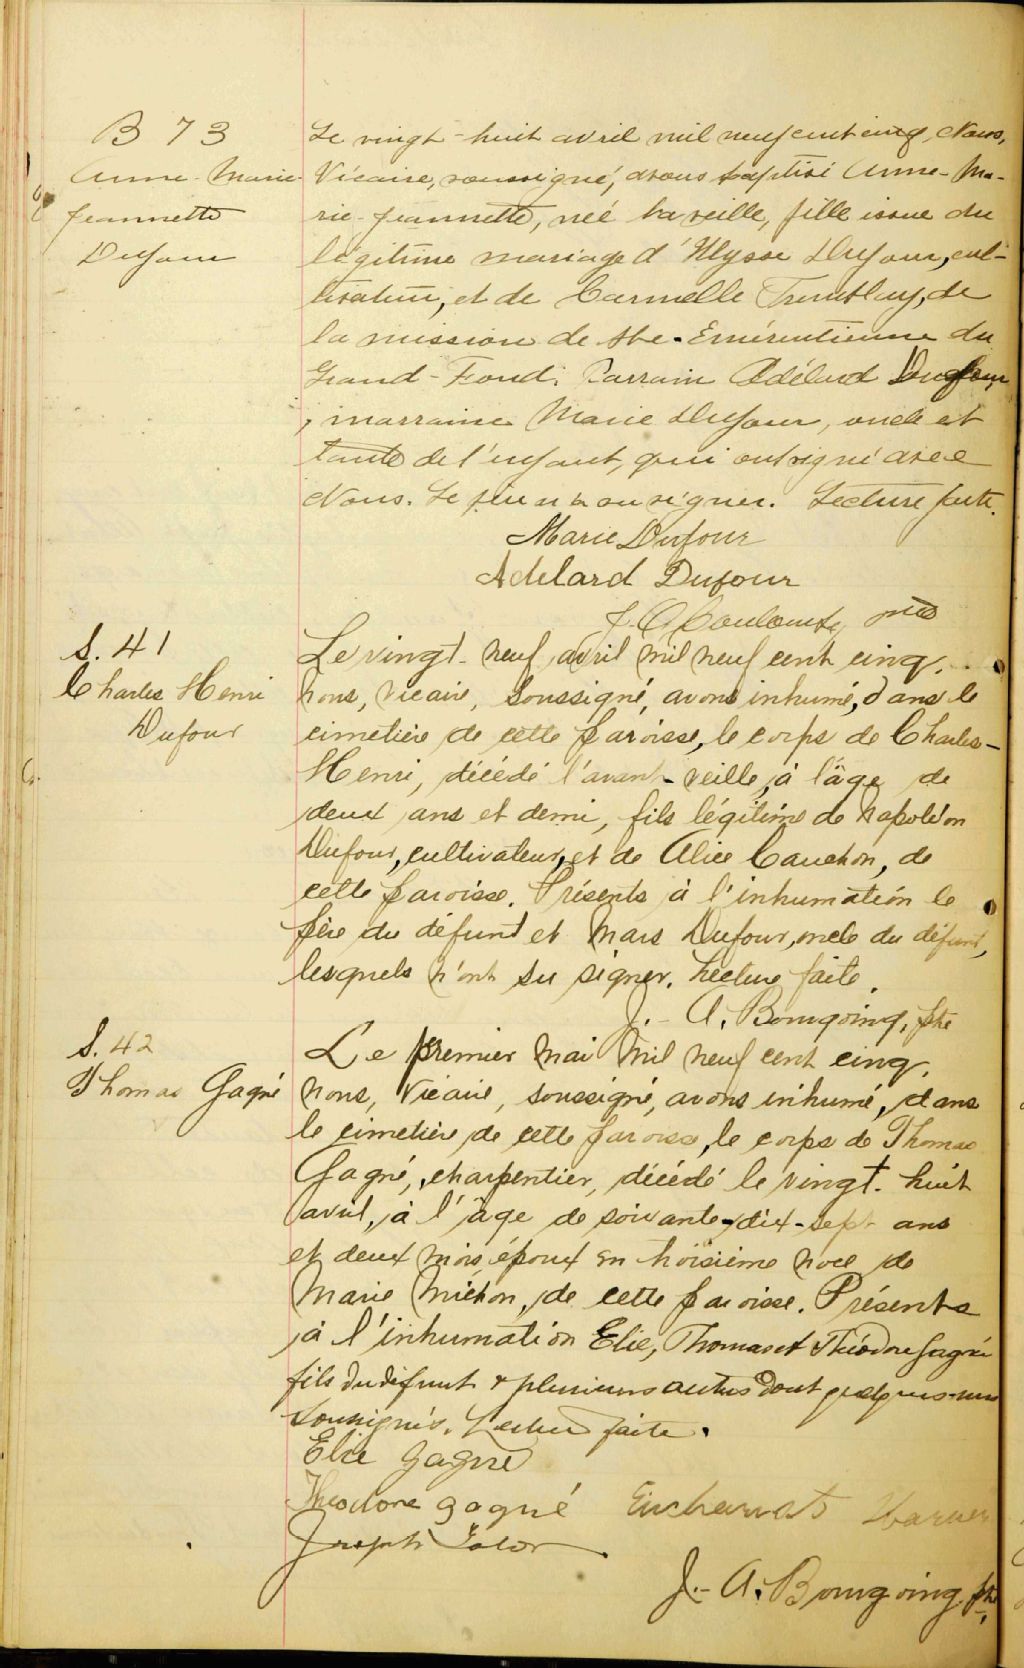 B 73
Anne-Marie-
Jeannette
Dufour
Le vingt-huit avril mil neuf cent cinq, Nous,
Vicaire, soussigné, avons baptisé Anne-Ma-
rie-Jeannette, née la veille, fille issue du
légitime mariage d'Ulysse Dufour, cul-
tivateur, et de Carmelle Tremblay, de
la mission de Ste-Emérentienne du
Grand-Fond. Parrain Adélard Dufour
, marraine Marie Dufour, oncle et
tante de l'enfant, qui ont signé avec
Nous. Le père n'a su signer. Lecture faite.
Marie Dufour
Adelard Dufour
J. A. Coulombe, ptre
S. 41
Charles Henri
Dufour
Le vingt-neuf avril mil neuf cent cinq,
nous, vicaire, soussigné, avons inhumé, dans le
cimetière de cette paroisse, le corps de Charles-
Henri, décédé l'avant-veille, à l'âge de
deux ans et demi, fils légitime de Napoléon
Dufour, cultivateur, et de Alice Cauchon, de
cette paroisse. Présents à l'inhumation le
père du défunt et Mars Dufour, oncle du défunt,
lesquels n'ont su signer. Lecture faite.
J.-A. Bourgoing, ptre
S. 42
Thomas Gagné
Le premier mai mil neuf cent cinq,
nous, Vicaire, soussigné, avons inhumé, dans
le cimetière de cette paroisse, le corps de Thomas
Gagné, charpentier, décédé le vingt-huit
avril, à l'âge de soixante-dix-sept ans
et deux mois, époux en troisième noce de
Marie Miction, de cette paroisse. Présents
à l'inhumation Elie, Thomas et Théodore Gagné
fils du défunt & plusieurs autres dont quelques-uns
soussignés. Lecture faite.
Elie Gagné
Théodore Gagné
Joseph
J.-A. Bourgoing, ptre